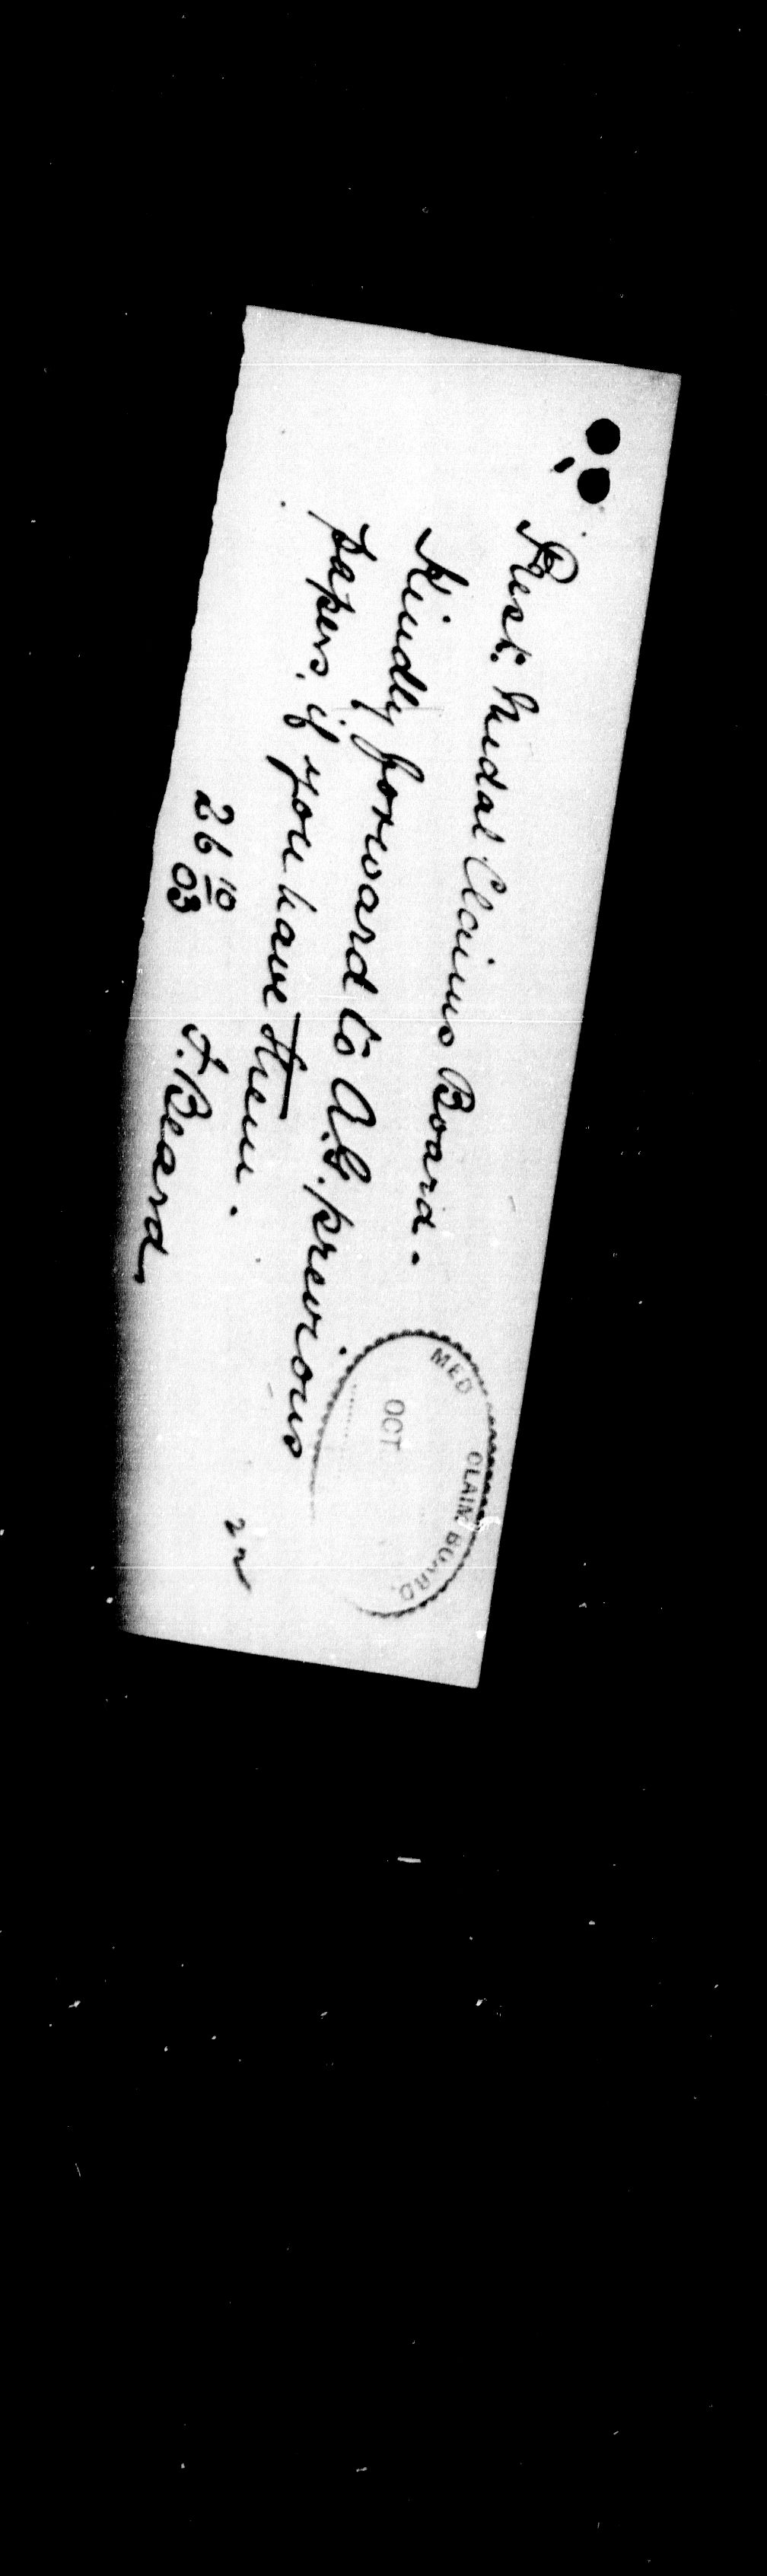 Prest. Medal Claims Board.
Kindly forward to A.G. previous
papers, if you have them.
26 10
03
F. Beard
MED CLAIM BOARD.
OCT